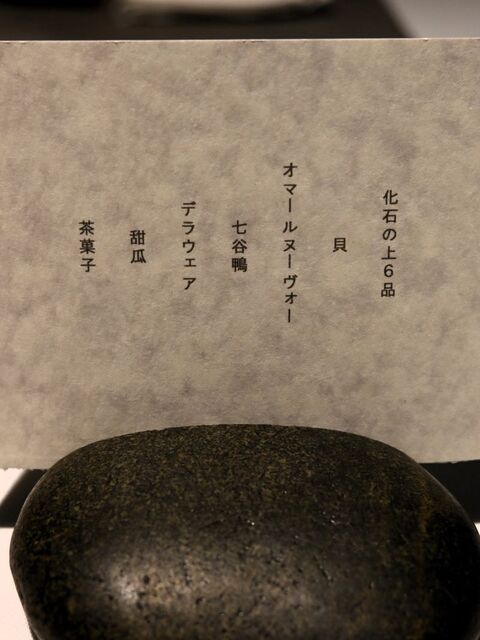 化石の上6品
貝
オマールヌーヴォー
七谷鴨
デラウェア
甜瓜
茶菓子